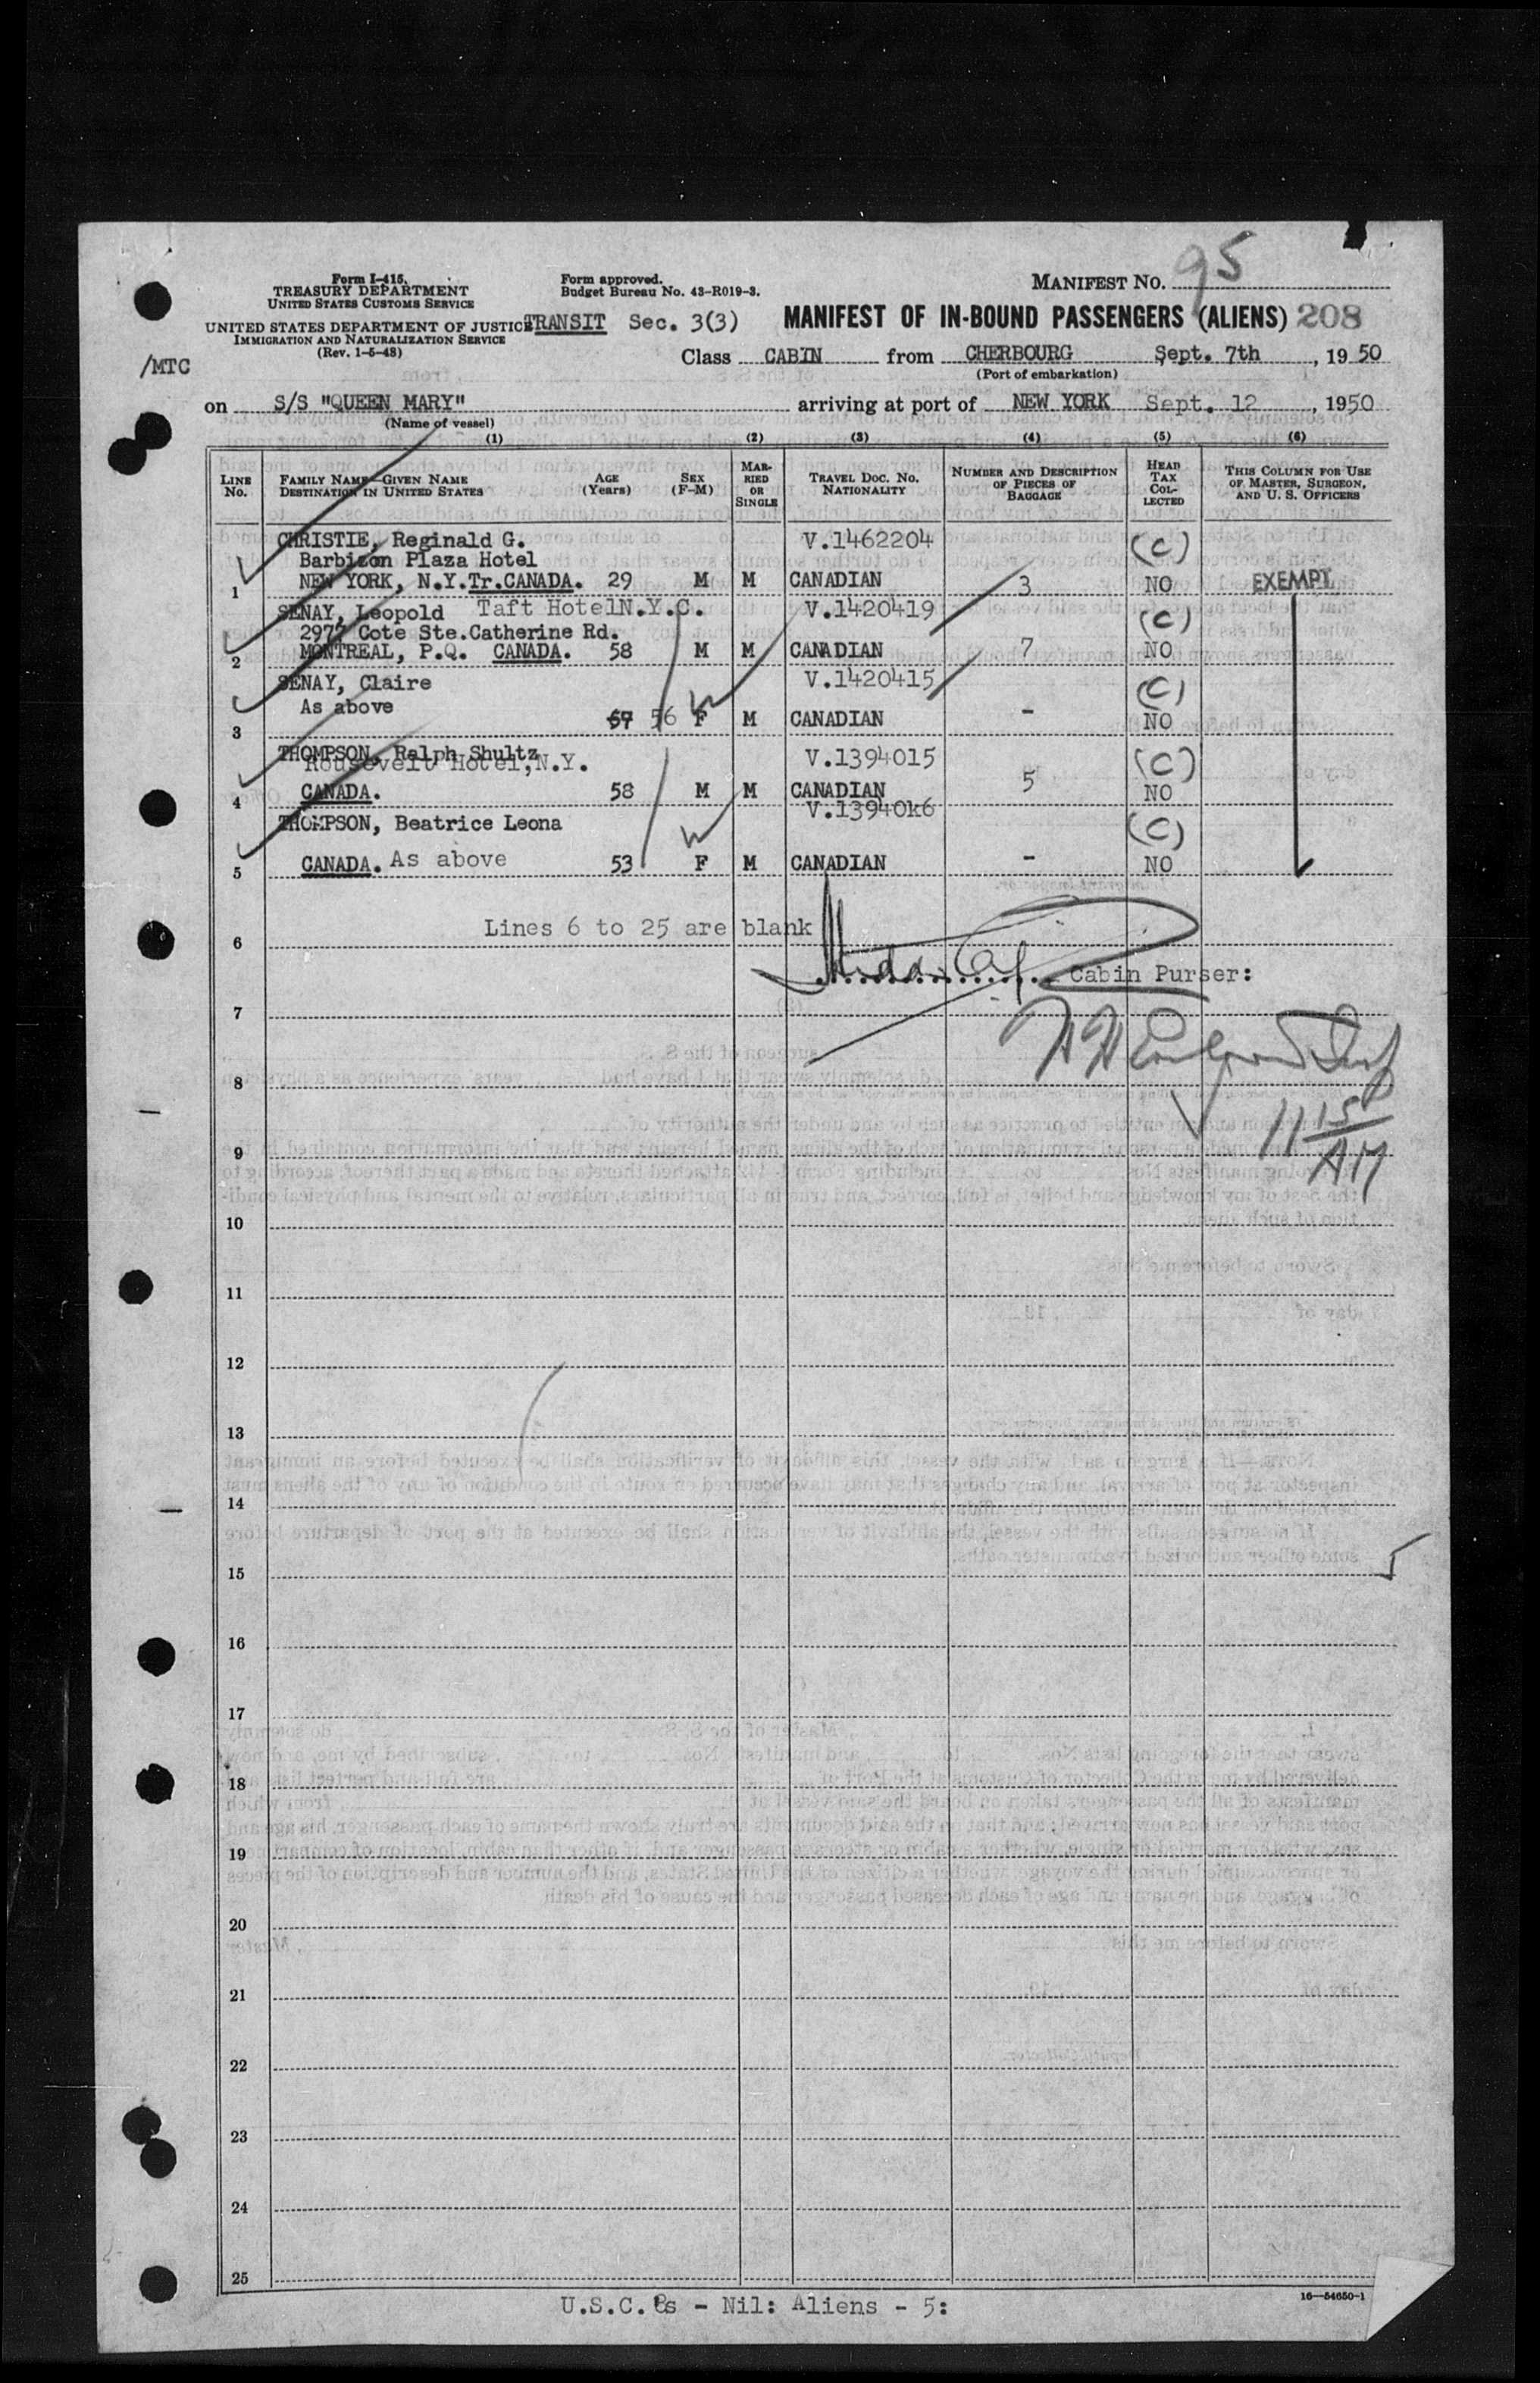 95
Form I-415
TREASURY DEPARTMENT
UNITED STATES CUSTOMS SERVICE
Form approved.
Budget Bureau No. 43-R019-3.
MANIFEST No.
UNITED STATES DEPARTMENT OF JUSTICE
IMMIGRATION AND NATURALIZATION SERVICE
(Rev. 1-5-48)
TRANSIT Sec. 3(3)
MANIFEST OF IN-BOUND PASSENGERS (ALIENS) 208
/MTC
Class CABIN from CHERBOURG Sept. 7th, 1950
(Port of embarkation)
on S/S "QUEEN MARY" arriving at port of NEW YORK Sept. 12, 1950
(Name of vessel)
(1) (2) (3) (4) (5) (6)
LINE No.
FAMILY NAME—GIVEN NAME
DESTINATION IN UNITED STATES
AGE (Years)
SEX (F-M)
MARRIED OR SINGLE
TRAVEL DOC. NO.
NATIONALITY
NUMBER AND DESCRIPTION OF PIECES OF BAGGAGE
HEAD TAX COLLECTED
THIS COLUMN FOR USE OF MASTER, SURGEON, AND U. S. OFFICERS
CHRISTIE, Reginald G. V.1462204 (C)
Barbizon Plaza Hotel
1 NEW YORK, N.Y.Tr.CANADA. 29 M M CANADIAN 3 NO EXEMPT
SENAY, Leopold Taft HotelN.Y.C. V.1420419 (C)
2977 Cote Ste.Catherine Rd.
2 MONTREAL, P.Q. CANADA. 58 M M CANADIAN 7 NO
SENAY, Claire V.1420415 (C)
As above
3 67 56 F M CANADIAN - NO
THOMPSON, Ralph Shultz V.1394015 (C)
Rousevelt Hotel,N.Y.
4 CANADA. 58 M M CANADIAN 5 NO
THOMPSON, Beatrice Leona V.13940k6 (C)
5 CANADA. As above 53 F M CANADIAN - NO
6 Lines 6 to 25 are blank
Cabin Purser:
7
8
11 15
AM
9
10
11
12
13
14
15
5
16
17
18
19
20
21
22
23
24
25
16—54650-1
U.S.C.&s - Nil: Aliens - 5: